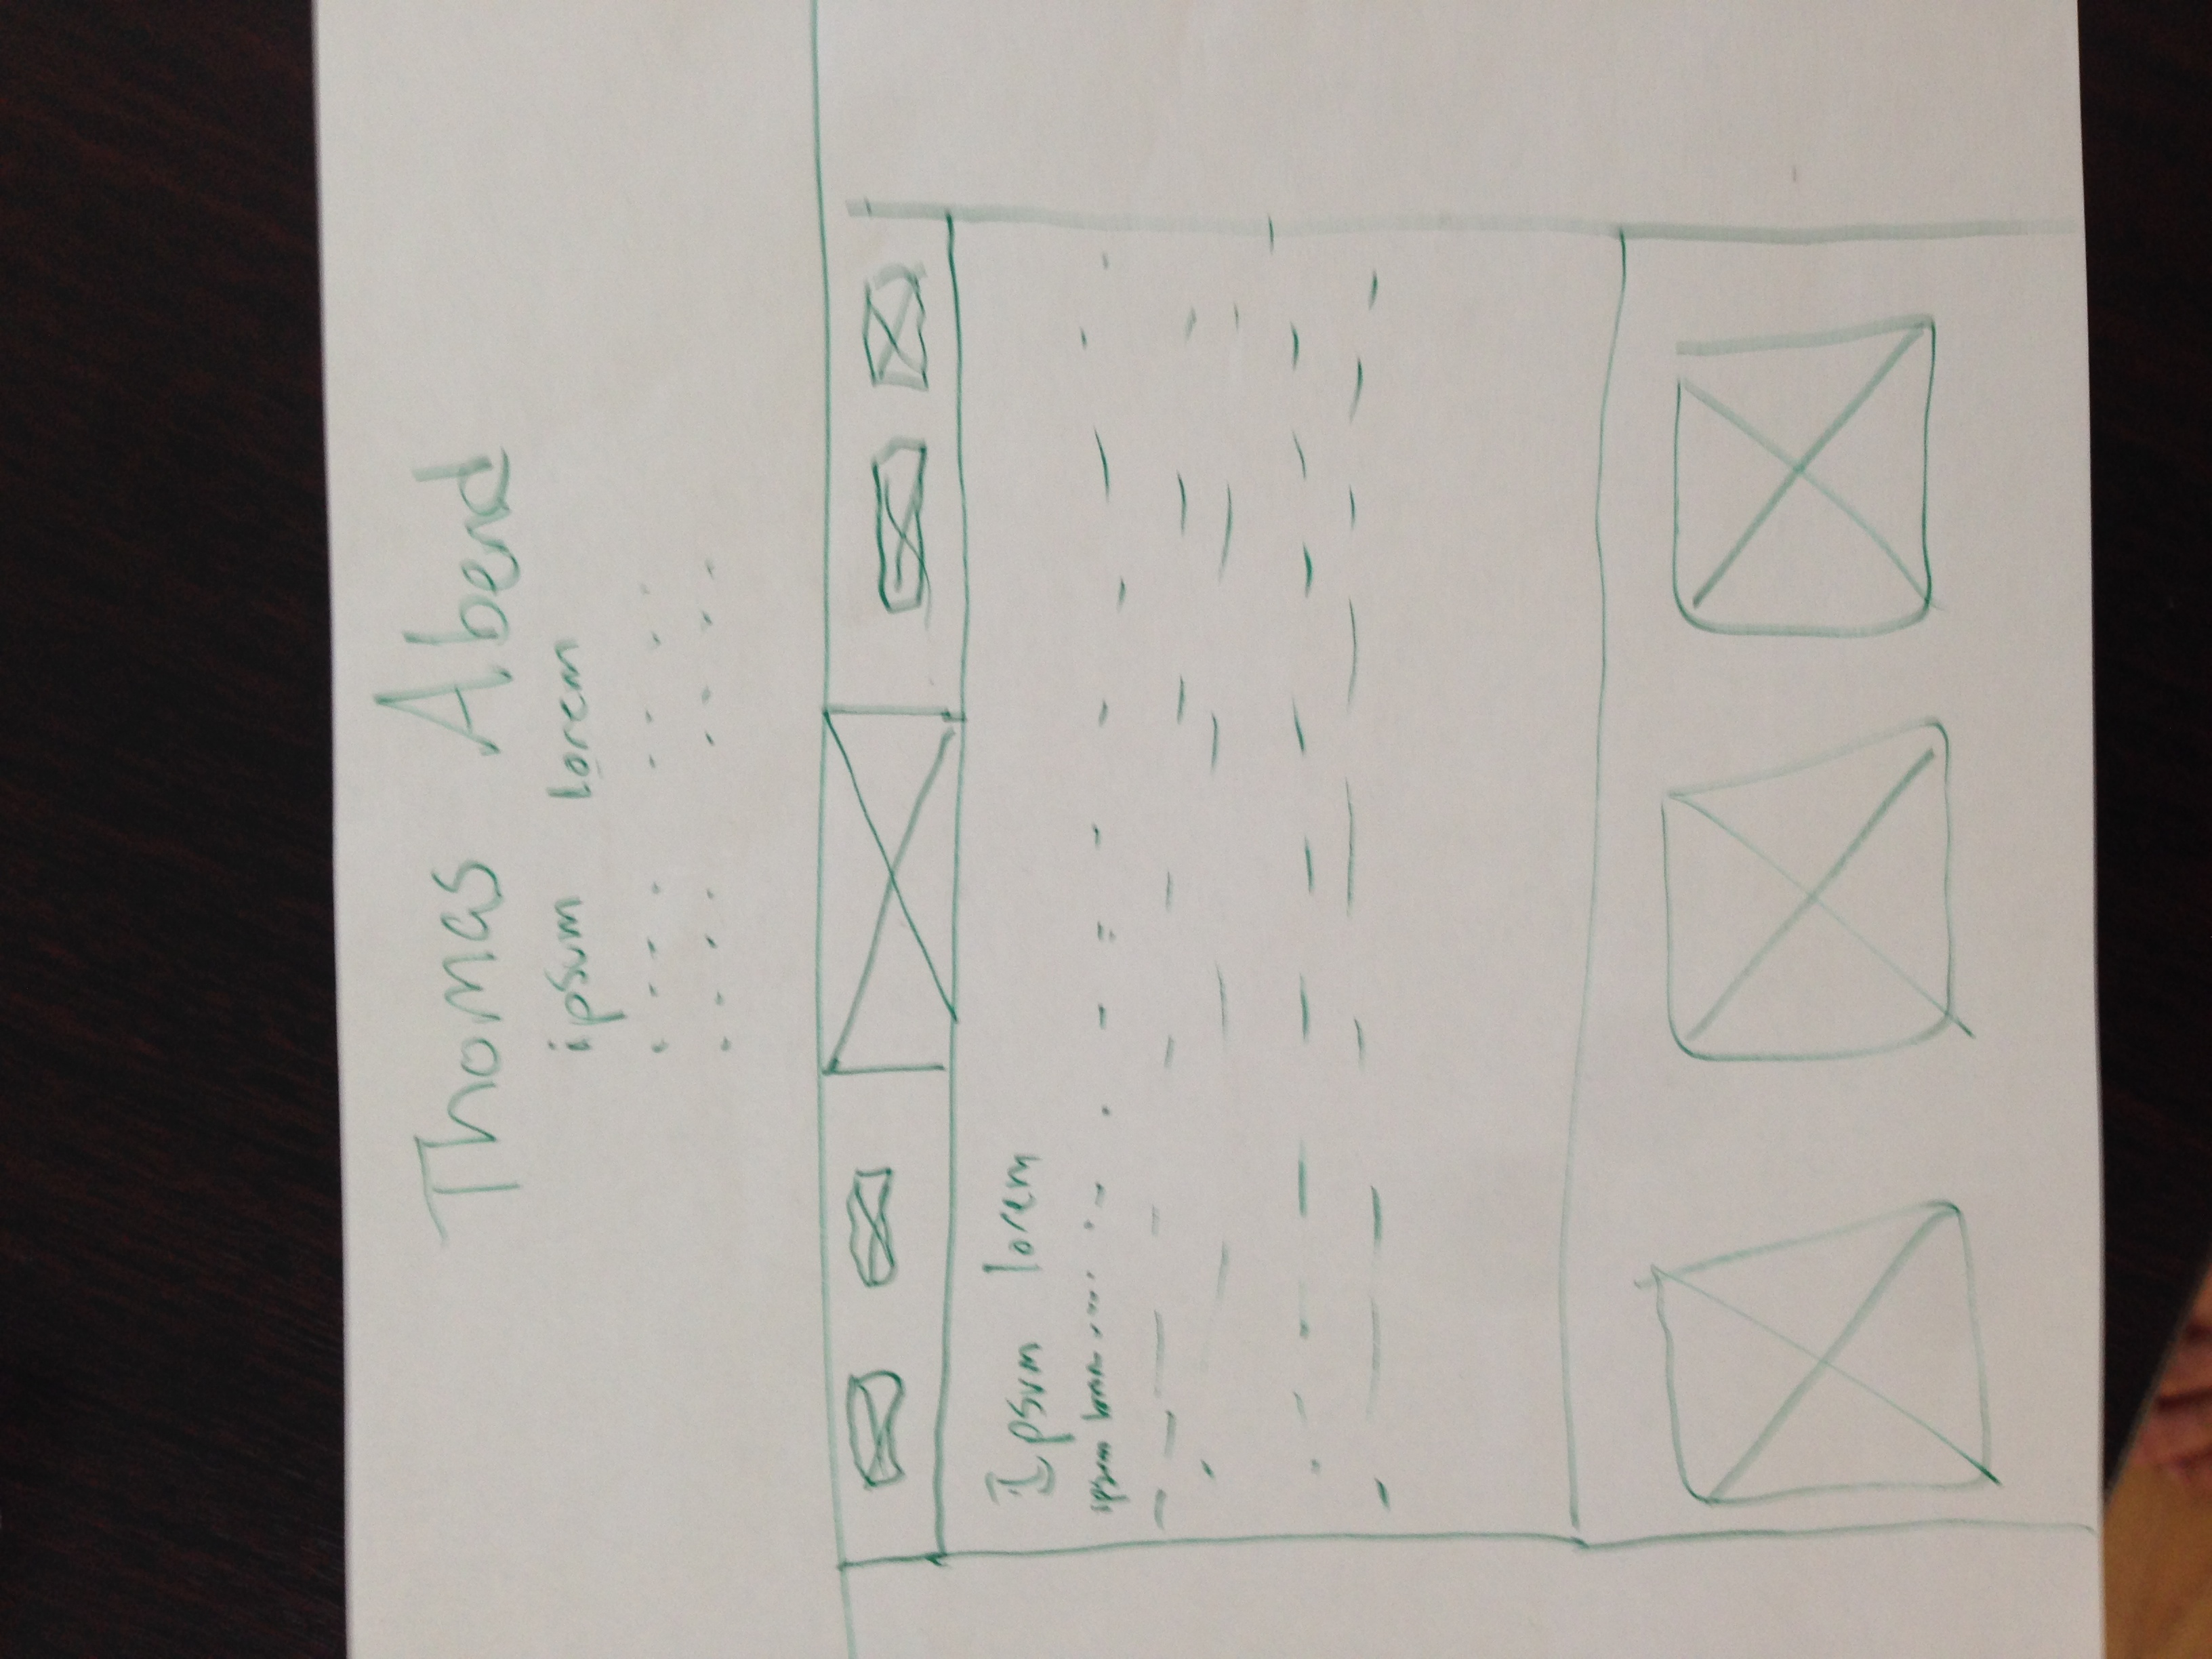 Thomas Abend
ipsum lorem
Ipsum lorem
ipsum lorem